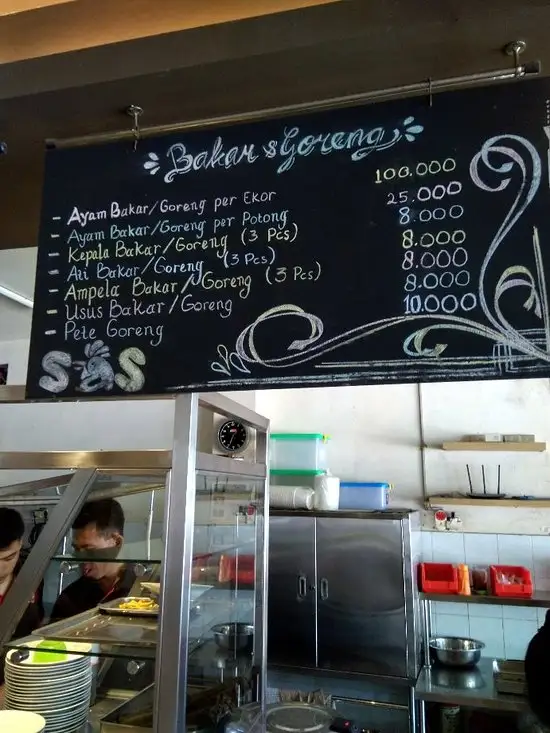 Bakar & Goreng
- Ayam Bakar/Goreng per Ekor 100.000
- Ayam Bakar/Goreng per Potong 25.000
- Kepala Bakar/Goreng (3 Pcs) 8.000
- Ati Bakar/Goreng (3 Pcs) 8.000
- Ampela Bakar/Goreng (3 Pcs) 8.000
- Usus Bakar/Goreng 8.000
- Pete Goreng 10.000
S S